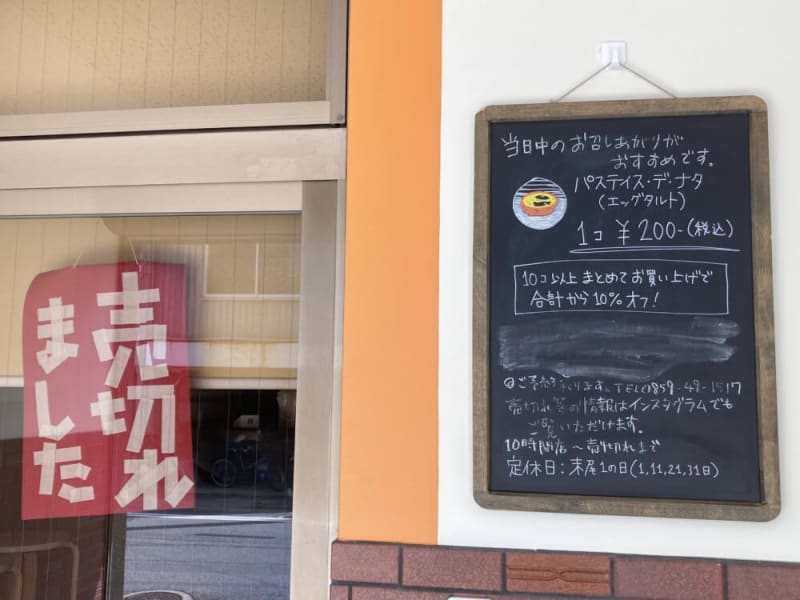 売切れ
ました
当日中のお召しあがりが
おすすめです。
パステイス・デ・ナタ
(エッグタルト)
1コ ¥200-(税込)
10コ以上まとめてお買い上げで
合計から10%オフ!
います。TEL
売切れ等の情報はインスタグラムでも
ご覧いただけます。
10時開店〜売り切れまで
定休日:末尾1の日(1,11,21,31日)